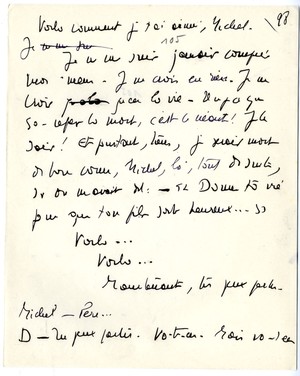 Voilà comment je t'ai aimé, Michel.
98
Je
105
Je ne me suis jamais
moi-même. Je ne crois en rien. Je ne
crois que la vie
la mort, c'est le néant! Je le
sais! Et pourtant, tiens, je serais mort
de bon cœur, Michel, là, tout de suite,
si on m'avait dit : — "Donne ta vie
pour que ton fils soit heureux..."
Voilà...
Voilà...
Maintenant, tu peux
Michel — Père...
D — Tu peux partir. Va-t-en. Mais va-t-en